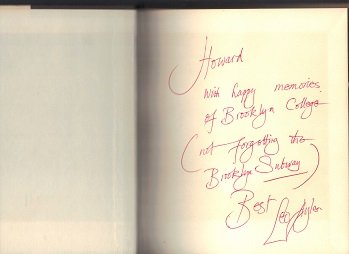 Howard
With happy memories
of Brooklyn College
(not forgetting the
Brooklyn Subway)
Best
Leo